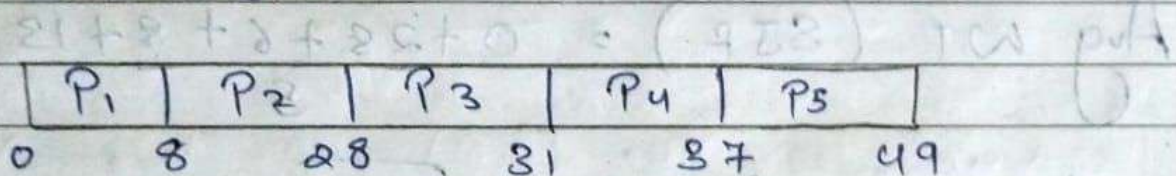 P1 P2 P3 P4 P5
0 8 28 31 37 49